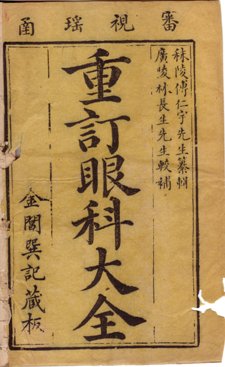 審視瑤函
秣陵傅仁宇先生纂輯
廣陵林長生先生較補
重訂眼科大全
金閶巽記藏板